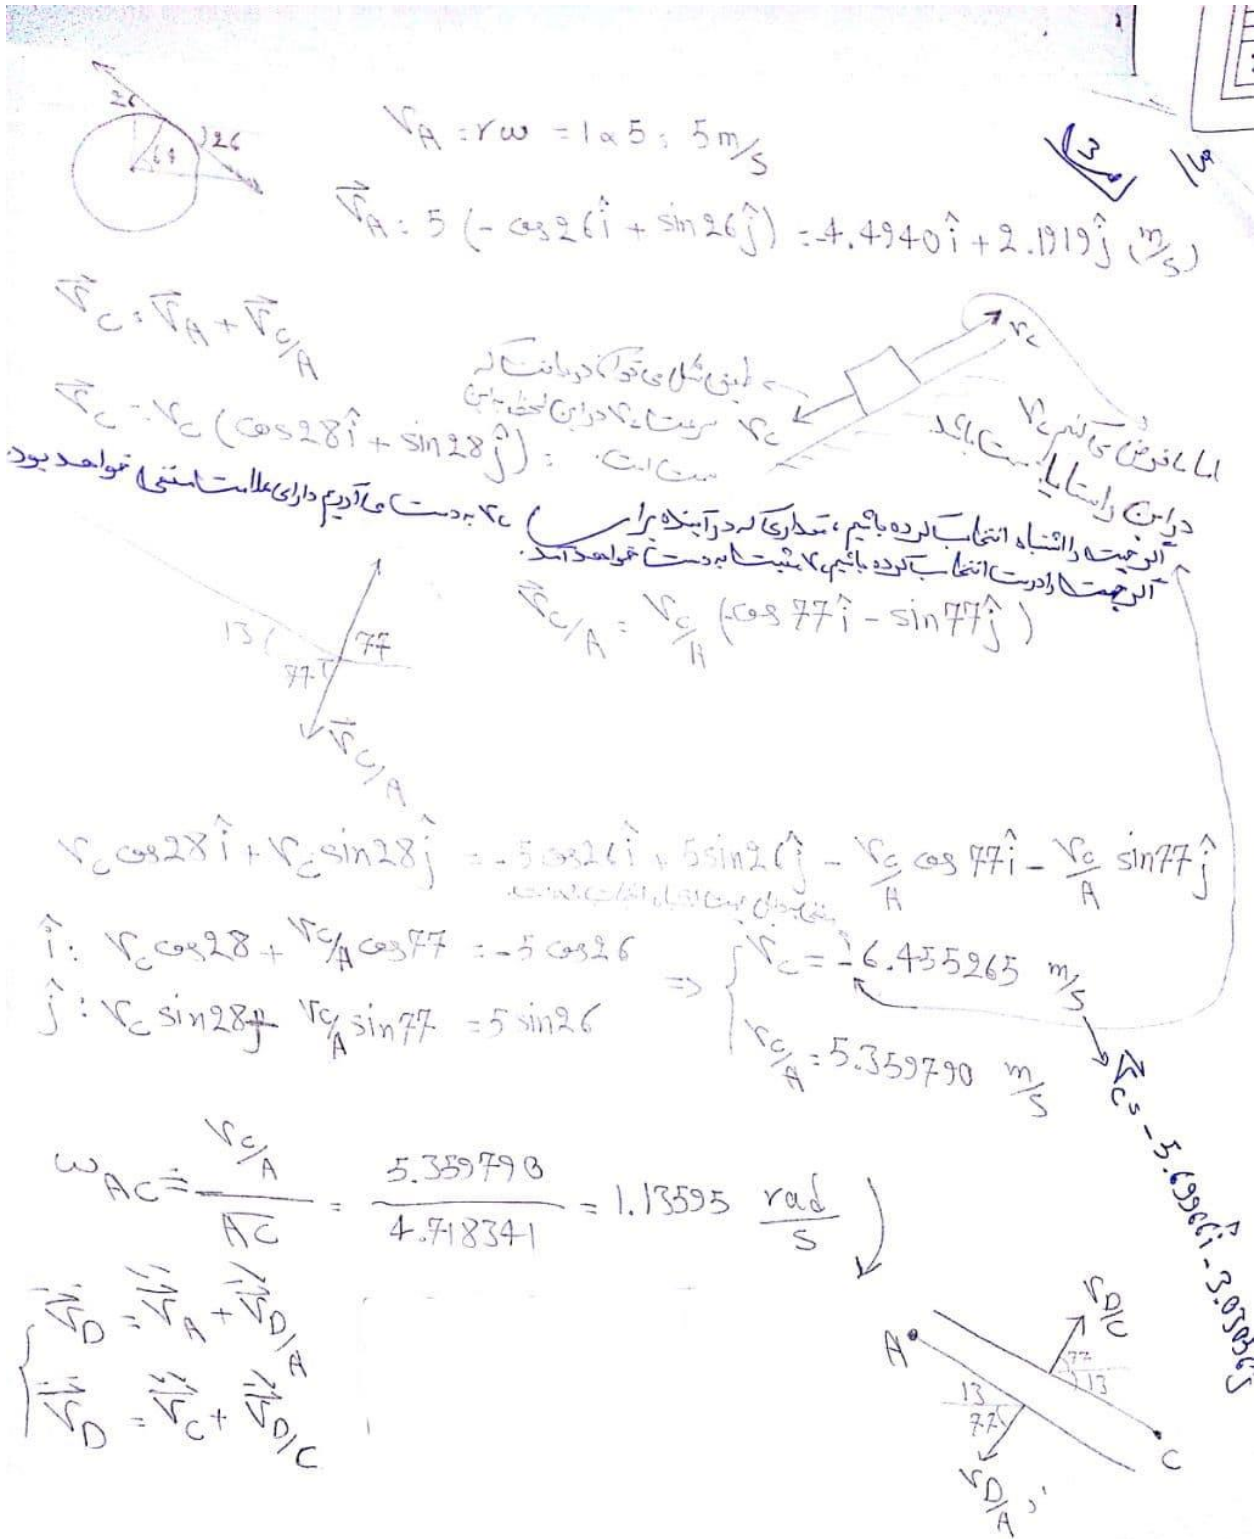 26
26
64
V_A = rω = 1×5 = 5 m/s
13
V⃗_A = 5 (-cos26 î + sin26 ĵ) = -4.4940 î + 2.1919 ĵ (m/s)
V⃗_C = V⃗_A + V⃗_C/A
V_C
V_C
طبق شکل می توان دریافت که
سرعت V_C در این لحظه به این
سمت است.
اما ما فرض می کنیم V_C
در این راستا با سمت باشد.
V⃗_C = V_C (cos28 î + sin28 ĵ) =
اگر جهت را اشتباه انتخاب کرده باشیم، مقداری که در آینده برای V_C به دست می آوریم دارای علامت منفی خواهد بود
اگر جهت را درست انتخاب کرده باشیم، V مثبت به دست خواهد آمد.
V⃗_C/A = V_C/A (-cos77 î - sin77 ĵ)
13
77
77
V⃗_C/A
V_C cos28 î + V_C sin28 ĵ = -5cos26 î + 5sin26 ĵ - V_C/A cos77 î - V_C/A sin77 ĵ
î: V_C cos28 + V_C/A cos77 = -5 cos26
ĵ: V_C sin28 + V_C/A sin77 = 5 sin26
⇒ { V_C = -6.455265 m/s
V_C/A = 5.359790 m/s
V⃗_C = -5.69966 î - 3.030565 ĵ
ω_AC = V_C/A / AC = 5.359790 / 4.718341 = 1.13595 rad/s
V⃗_D = V⃗_A + V⃗_D/A
V⃗_D = V⃗_C + V⃗_D/C
V_D/C
A
77
13
13
77
C
V_D/A